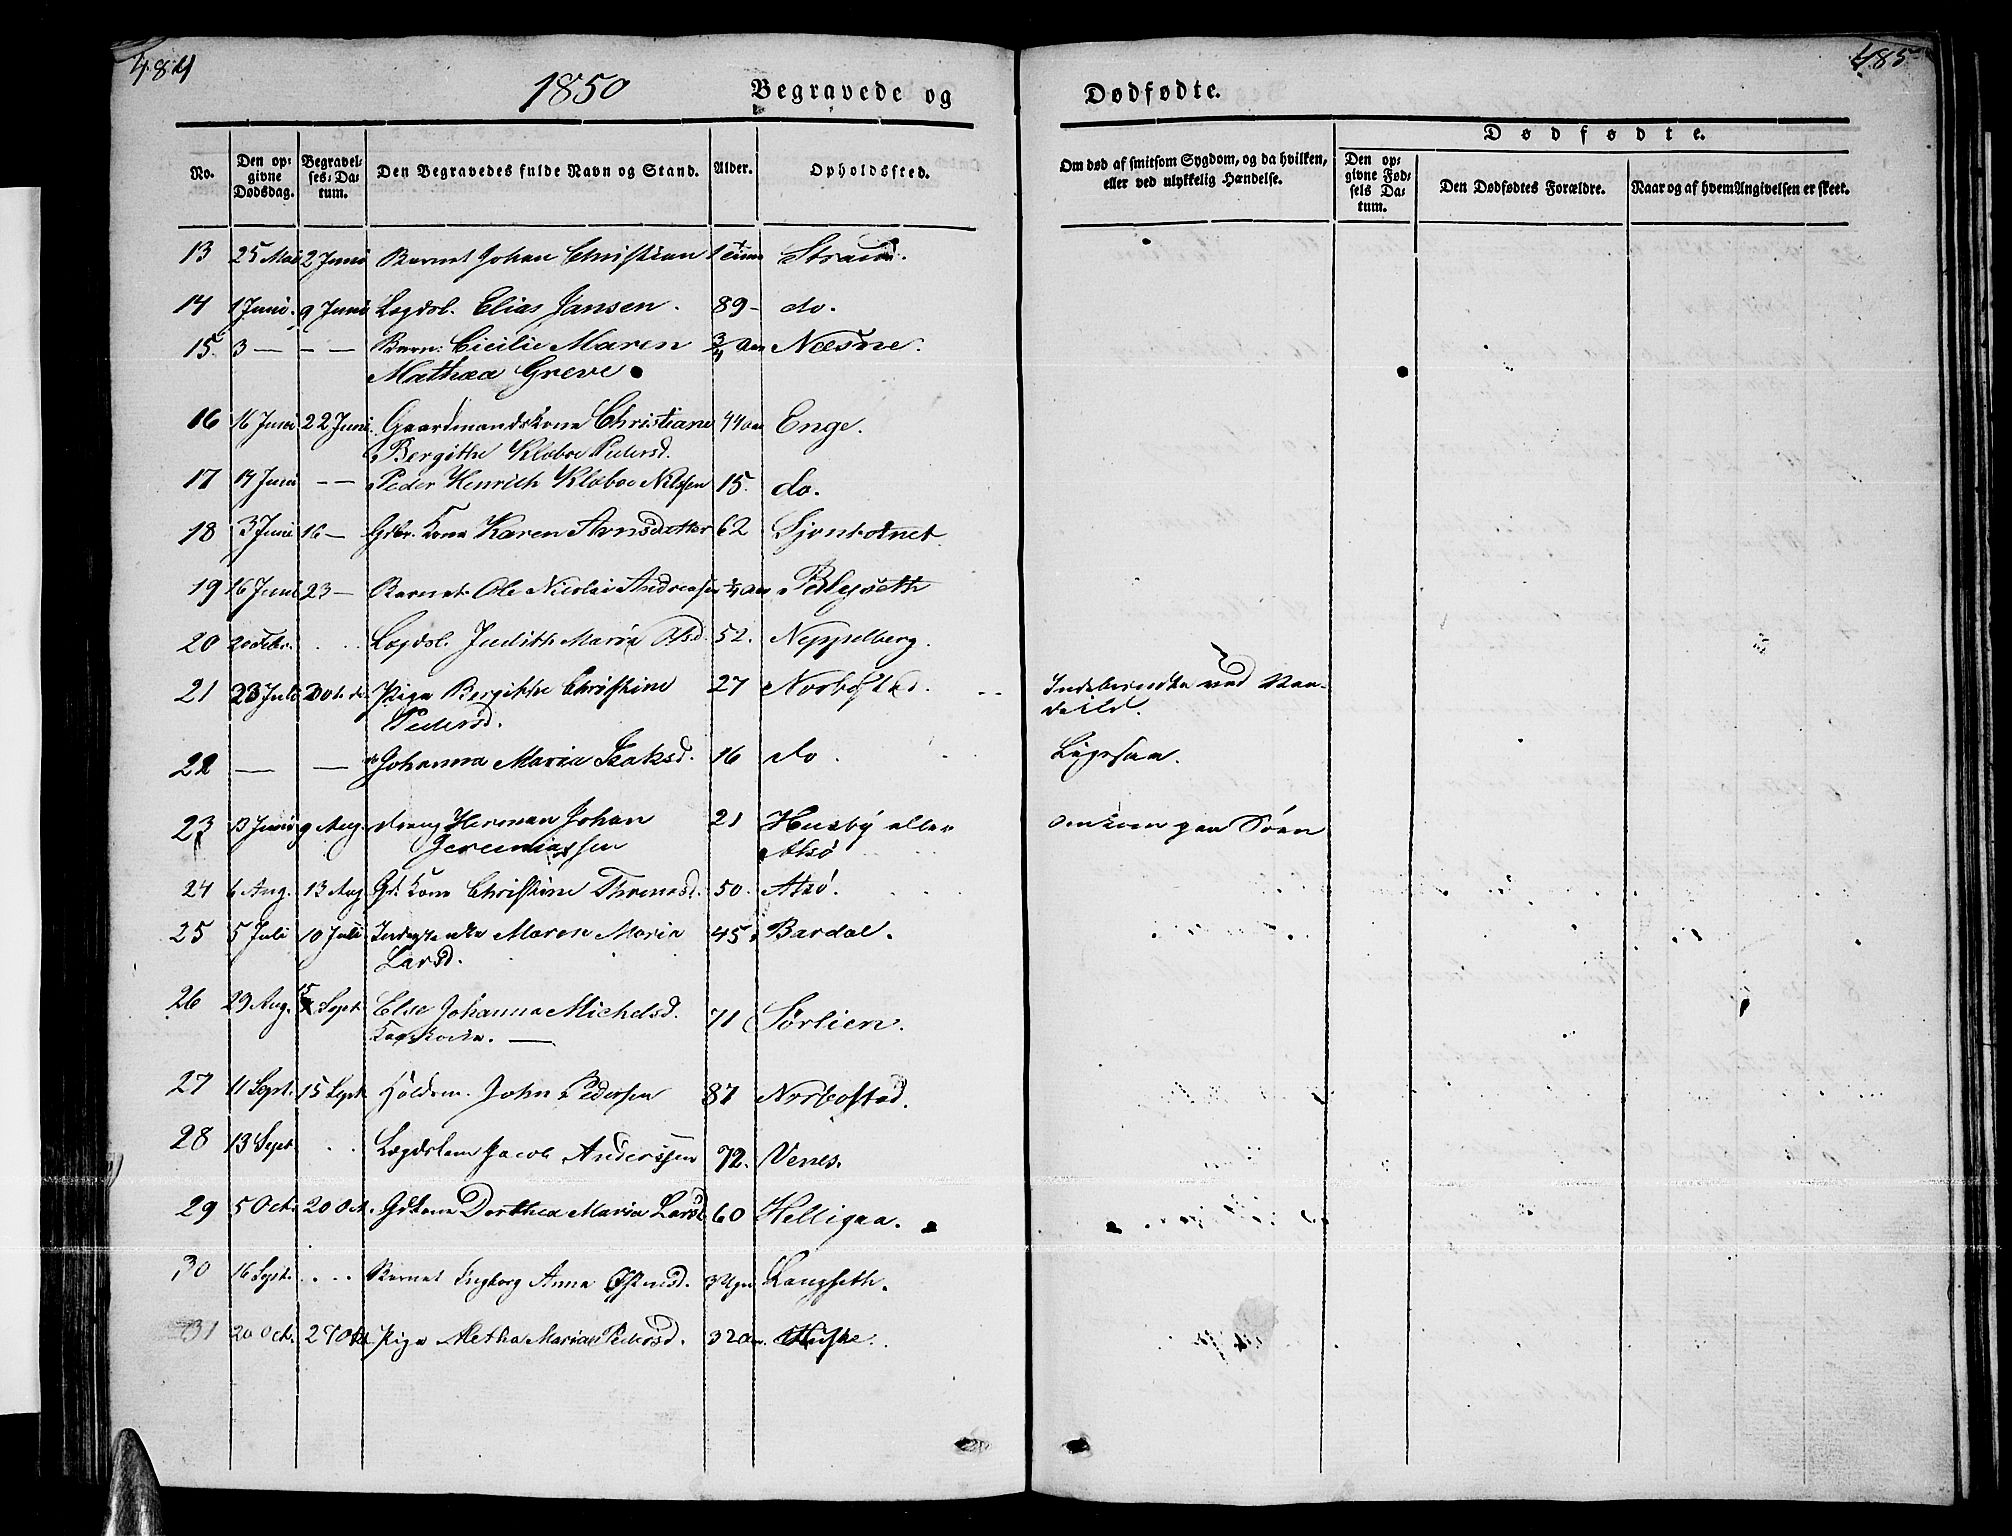 484
485
1850
Begravede og
Dødfødte.
No.
Den opgivne Dødsdag.
Begravelses-Datum.
Den Begravedes fulde Navn og Stand.
Alder.
Opholdssted.
Om død af smitsom Sygdom, og da hvilken, eller ved ulykkelig Hændelse.
Dødfødte.
Den opgivne Fødsels Datum.
Den Dødfødtes Forældre.
Naar og af hvem Angivelsen er skeet.
13 25 Mai 2 Juni Barnet Johan Christian
14 1 Juni. 9 Juni Lægdsl. Elias Jansen. 89 - do.
15. 3 — — — Barn: Cicilie Maren 3/4 Aar Næsne.
Mathæa Greve
16 16 Juni 22 Juni Gaardmandskone Christiane 44 Aar Enge.
Bergithe Kloboe Pedersd.
17 14 Juni — — Peder Henrich Kloboe Nilssen 15. do.
18 3 Juni 16 — Gdbr. Kone Karen Arnsdatter 62 Sjonbotnet
19 16 Juni 23 — Barnet Ole Nicolai Andreasen 1/4 Aar
20 Lægdsl. Judith Maria Olsd. 52. Neppelberg.
21 23 Juli Pige Bergitte Christine 27 Norbostad. Indebrændte ved Vaa-
Pedersd. deild.
22 — — Johanna Maria Isaksd. 16 do. Ligesaa.
23 13 Juni 9 Aug. dreng Herman Johan 21 Husby eller omkom paa Søen
Jeremiassen Alsø
24 6 Aug. 13 Aug Gd. Kone Christine Thomasd. 50. Alsø.
25 5 Juli 10 Juli Maren Maria 45. Bardal.
Larsd.
26 29 Aug. 15 Sept. Else Johanna Michelsd. 71 Sørlien.
27 11 Sept. 15 Sept. Holdem. John Pedersen 87 Norbostad.
28 13 Sept . . Lægdslem Jacob Anderssen 72. Venes.
29 5 Oct. 20 Oct. Gdkone Dorthea Maria Larsd. 60 Helligaa.
30 16 Sept. . . . . Barnet Ingborg Anna 3 Uger Langseth.
31 20 Oct. 27 Oct Pige Metha Maria Pedersd. 32 Aar.